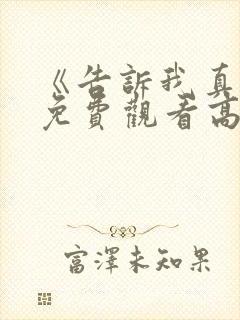 《告訴我真
免費觀看高
富澤未知果